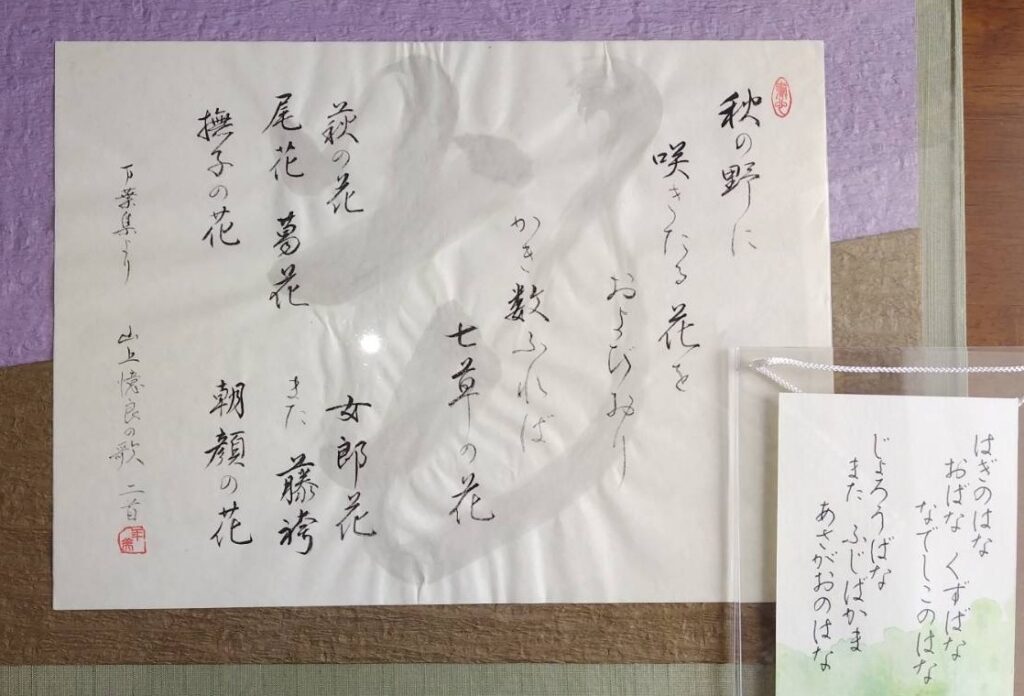 秋の野に
咲きたる花を
およびおり
かき数ふれば
七草の花
萩の花
尾花 葛花
撫子の花
女郎花
また 藤袴
朝顔の花
万葉集より 山上憶良の歌 二首
はぎのはな
おばな くずばな
なでしこのはな
じょろうばな
また ふじばかま
あさがおのはな